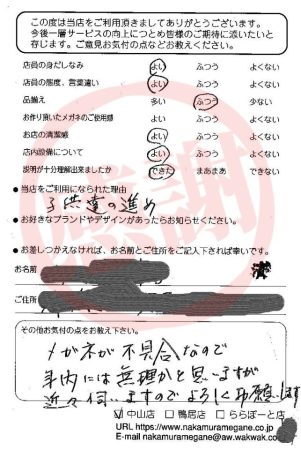 この度は当店をご利用頂きましてありがとうございます。
今後一層サービスの向上につとめ皆様のご期待に添いたいと
存じます。ご意見お気付の点などお教えください。
店員の身だしなみ よい ふつう よくない
店員の態度、言葉遣い よい ふつう よくない
品揃え 多い ふつう 少ない
お作り頂いたメガネのご使用感 よい ふつう よくない
お店の清潔感 よい ふつう よくない
店内設備について よい ふつう よくない
説明が十分理解出来ましたか できた まあまあ できない
●当店をご利用になられた理由
子供達の進め
●お好きなブランドやデザインがあったらお知らせください。
●お差しつかえなければ、お名前とご住所をご記入下されば幸いです。
お名前
ご住所
その他お気付の点をお教え下さい。
メガネが不具合なので
年内には無理かと思いますが
近々伺いますのでよろしくお願します
中山店 鴨居店 ららぽーと店
URL https://www.nakamuramegane.co.jp
E-mail nakamuramegane@aw.wakwak.com
感謝